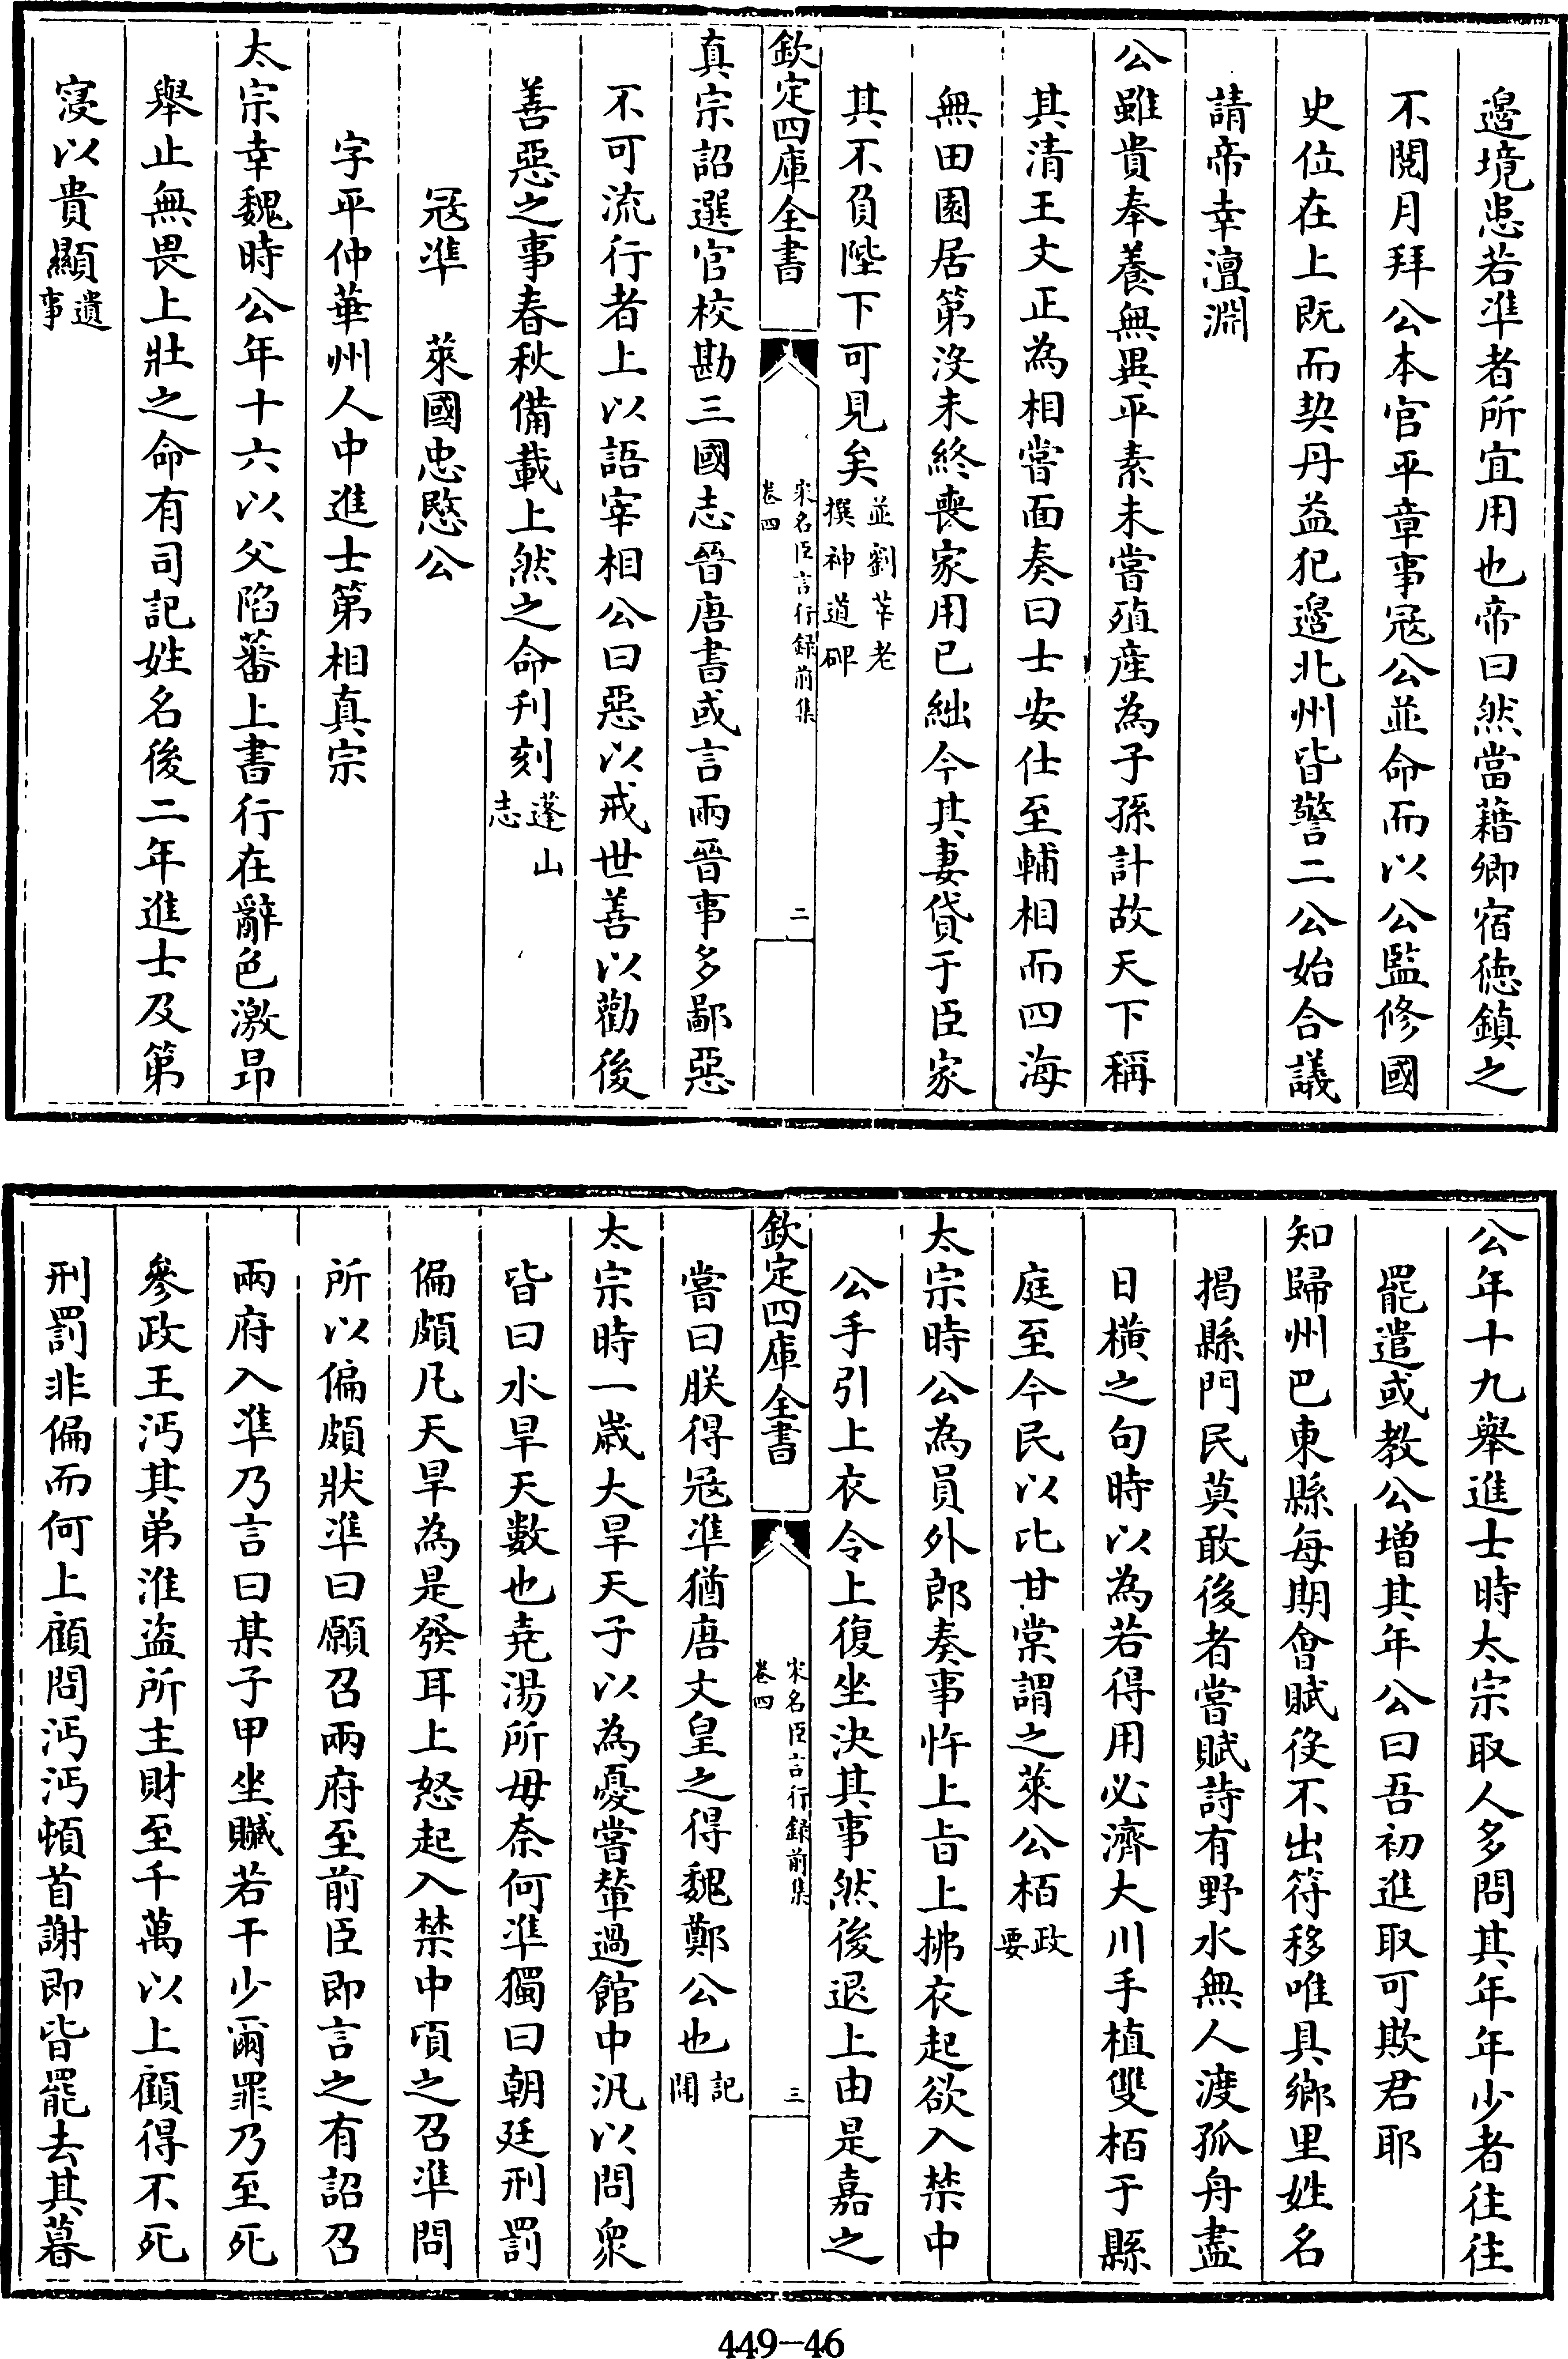 邉境患若凖者所宜用也帝曰然當藉卿宿徳鎮之
不閲月拜公本官平章事冦公並命而以公監修國
史位在上既而契丹益犯邉北州皆警二公始合議
請帝幸澶淵
公雖貴奉養無異平素未嘗殖産為子孫計故天下稱
其清王文正為相嘗面奏曰士安仕至輔相而四海
無田園居第没未終喪家用已絀今其妻貸于臣家
其不負陛下可見矣並劉莘老撰神道碑
欽定四庫全書
宋名臣言行録前集
卷四
二
真宗詔選官校勘三國志晉唐書或言兩晉事多鄙惡
不可流行者上以語宰相公曰惡以戒世善以勸後
善惡之事春秋備載上然之命刋刻蓬山志
冦凖 萊國忠愍公
字平仲華州人中進士第相真宗
太宗幸魏時公年十六以父陷蕃上書行在辭色激昂
舉止無畏上壯之命有司記姓名後二年進士及第
寖以貴顯遺事
公年十九舉進士時太宗取人多問其年年少者往往
罷遣或教公増其年公曰吾初進取可欺君耶
知歸州巴東縣每期㑹賦役不出符移唯具鄉里姓名
揭縣門民莫敢後者嘗賦詩有野水無人渡孤舟盡
日横之句時以為若得用必濟大川手植雙栢于縣
庭至今民以比甘棠謂之萊公栢政要
太宗時公為員外郎奏事忤上㫖上拂衣起欲入禁中
公手引上衣令上復坐決其事然後退上由是嘉之
欽定四庫全書
宋名臣言行録前集
卷四
三
嘗曰朕得冦凖猶唐文皇之得魏鄭公也記聞
太宗時一嵗大旱天子以為憂嘗輦過館中汎以問衆
皆曰水旱天數也堯湯所毋奈何凖獨曰朝廷刑罰
偏頗凡天旱為是發耳上怒起入禁中頃之召凖問
所以偏頗狀凖曰願召兩府至前臣即言之有詔召
兩府入凖乃言曰某子甲坐贓若干少爾罪乃至死
參政王沔其弟淮盗所主財至千萬以上顧得不死
刑罰非偏而何上顧問沔沔頓首謝即皆罷去其暮
449-46